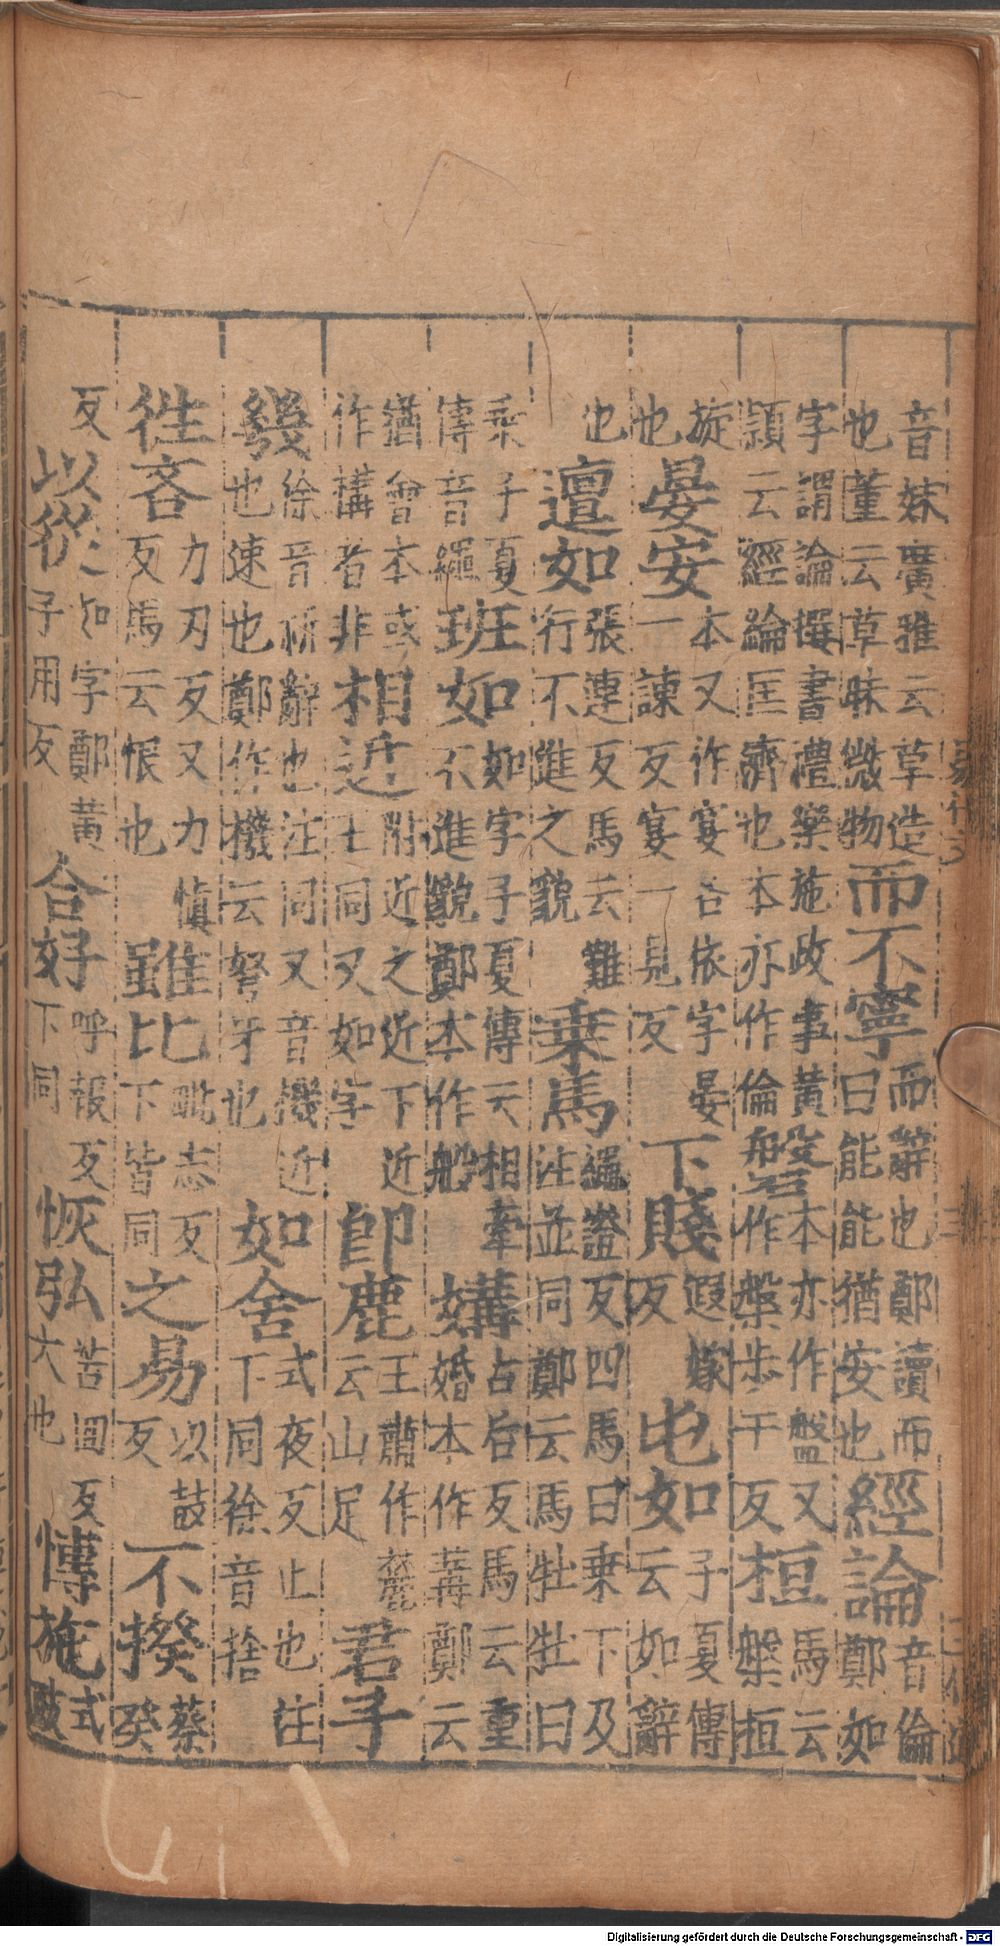 音妹廣雅云草造也董云草昧微物而不寧而辭也鄭讀而曰能能猶安也經論音倫鄭如
字謂論撰書禮樂施政事黃穎云經綸匡濟也本亦作倫磐本亦作盤又作槃步干反桓馬云槃桓
旋也晏安本又作宴各依字晏一諫反宴一見反下賤遐嫁反屯如子夏傳云如辭
也邅如張連反馬云難行不進之貌乗馬繩證反四馬曰乗下及注並同鄭云馬牡牡曰
乗子夏傳音繩班如如字子夏傳云相牽不進貌鄭本作般媾古后反馬云重婚本作冓鄭云
猶會本或作構者非相近附近之近下近王同又如字即鹿王肅作麓云山足君子
幾徐音祈辭也注同又音機近也速也鄭作機云弩牙也如舍式夜反止也注下同徐音捨
徃吝力刃反又力慎反馬云恨也雖比毗志反下皆同之易以豉反不揆蔡癸
反以從如字鄭黃子用反合好呼報反下同恢弘苦回反大也愽施式豉
Digitalisierung gefördert durch die Deutsche Forschungsgemeinschaft - DFG